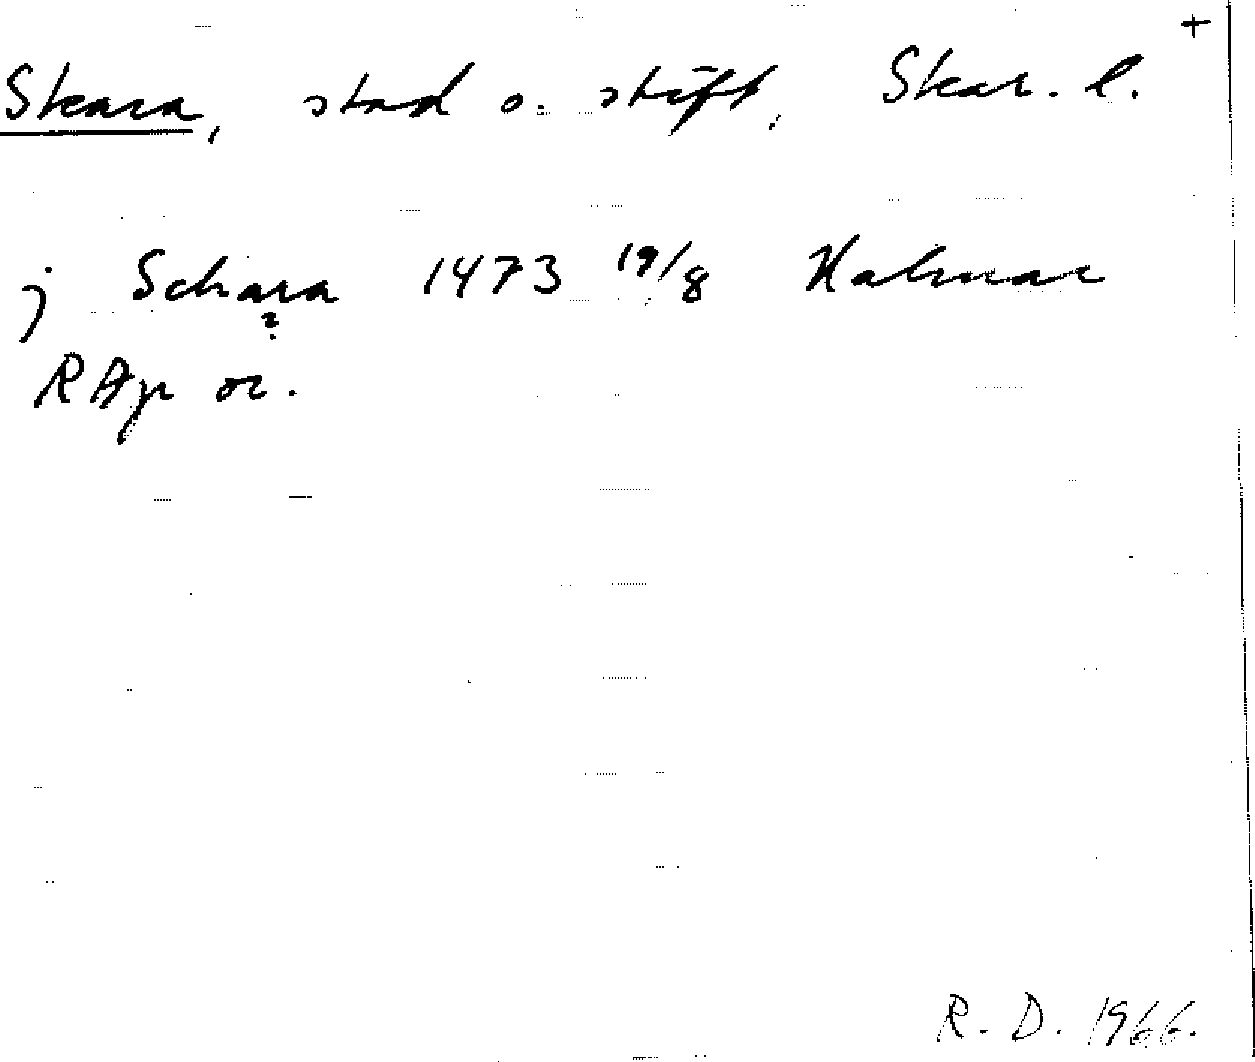 +
Skara, stad o. stift, Skar. l.
j Schara 1473 19/8 Kalmar
?
RAp or.
R. D. 1966.